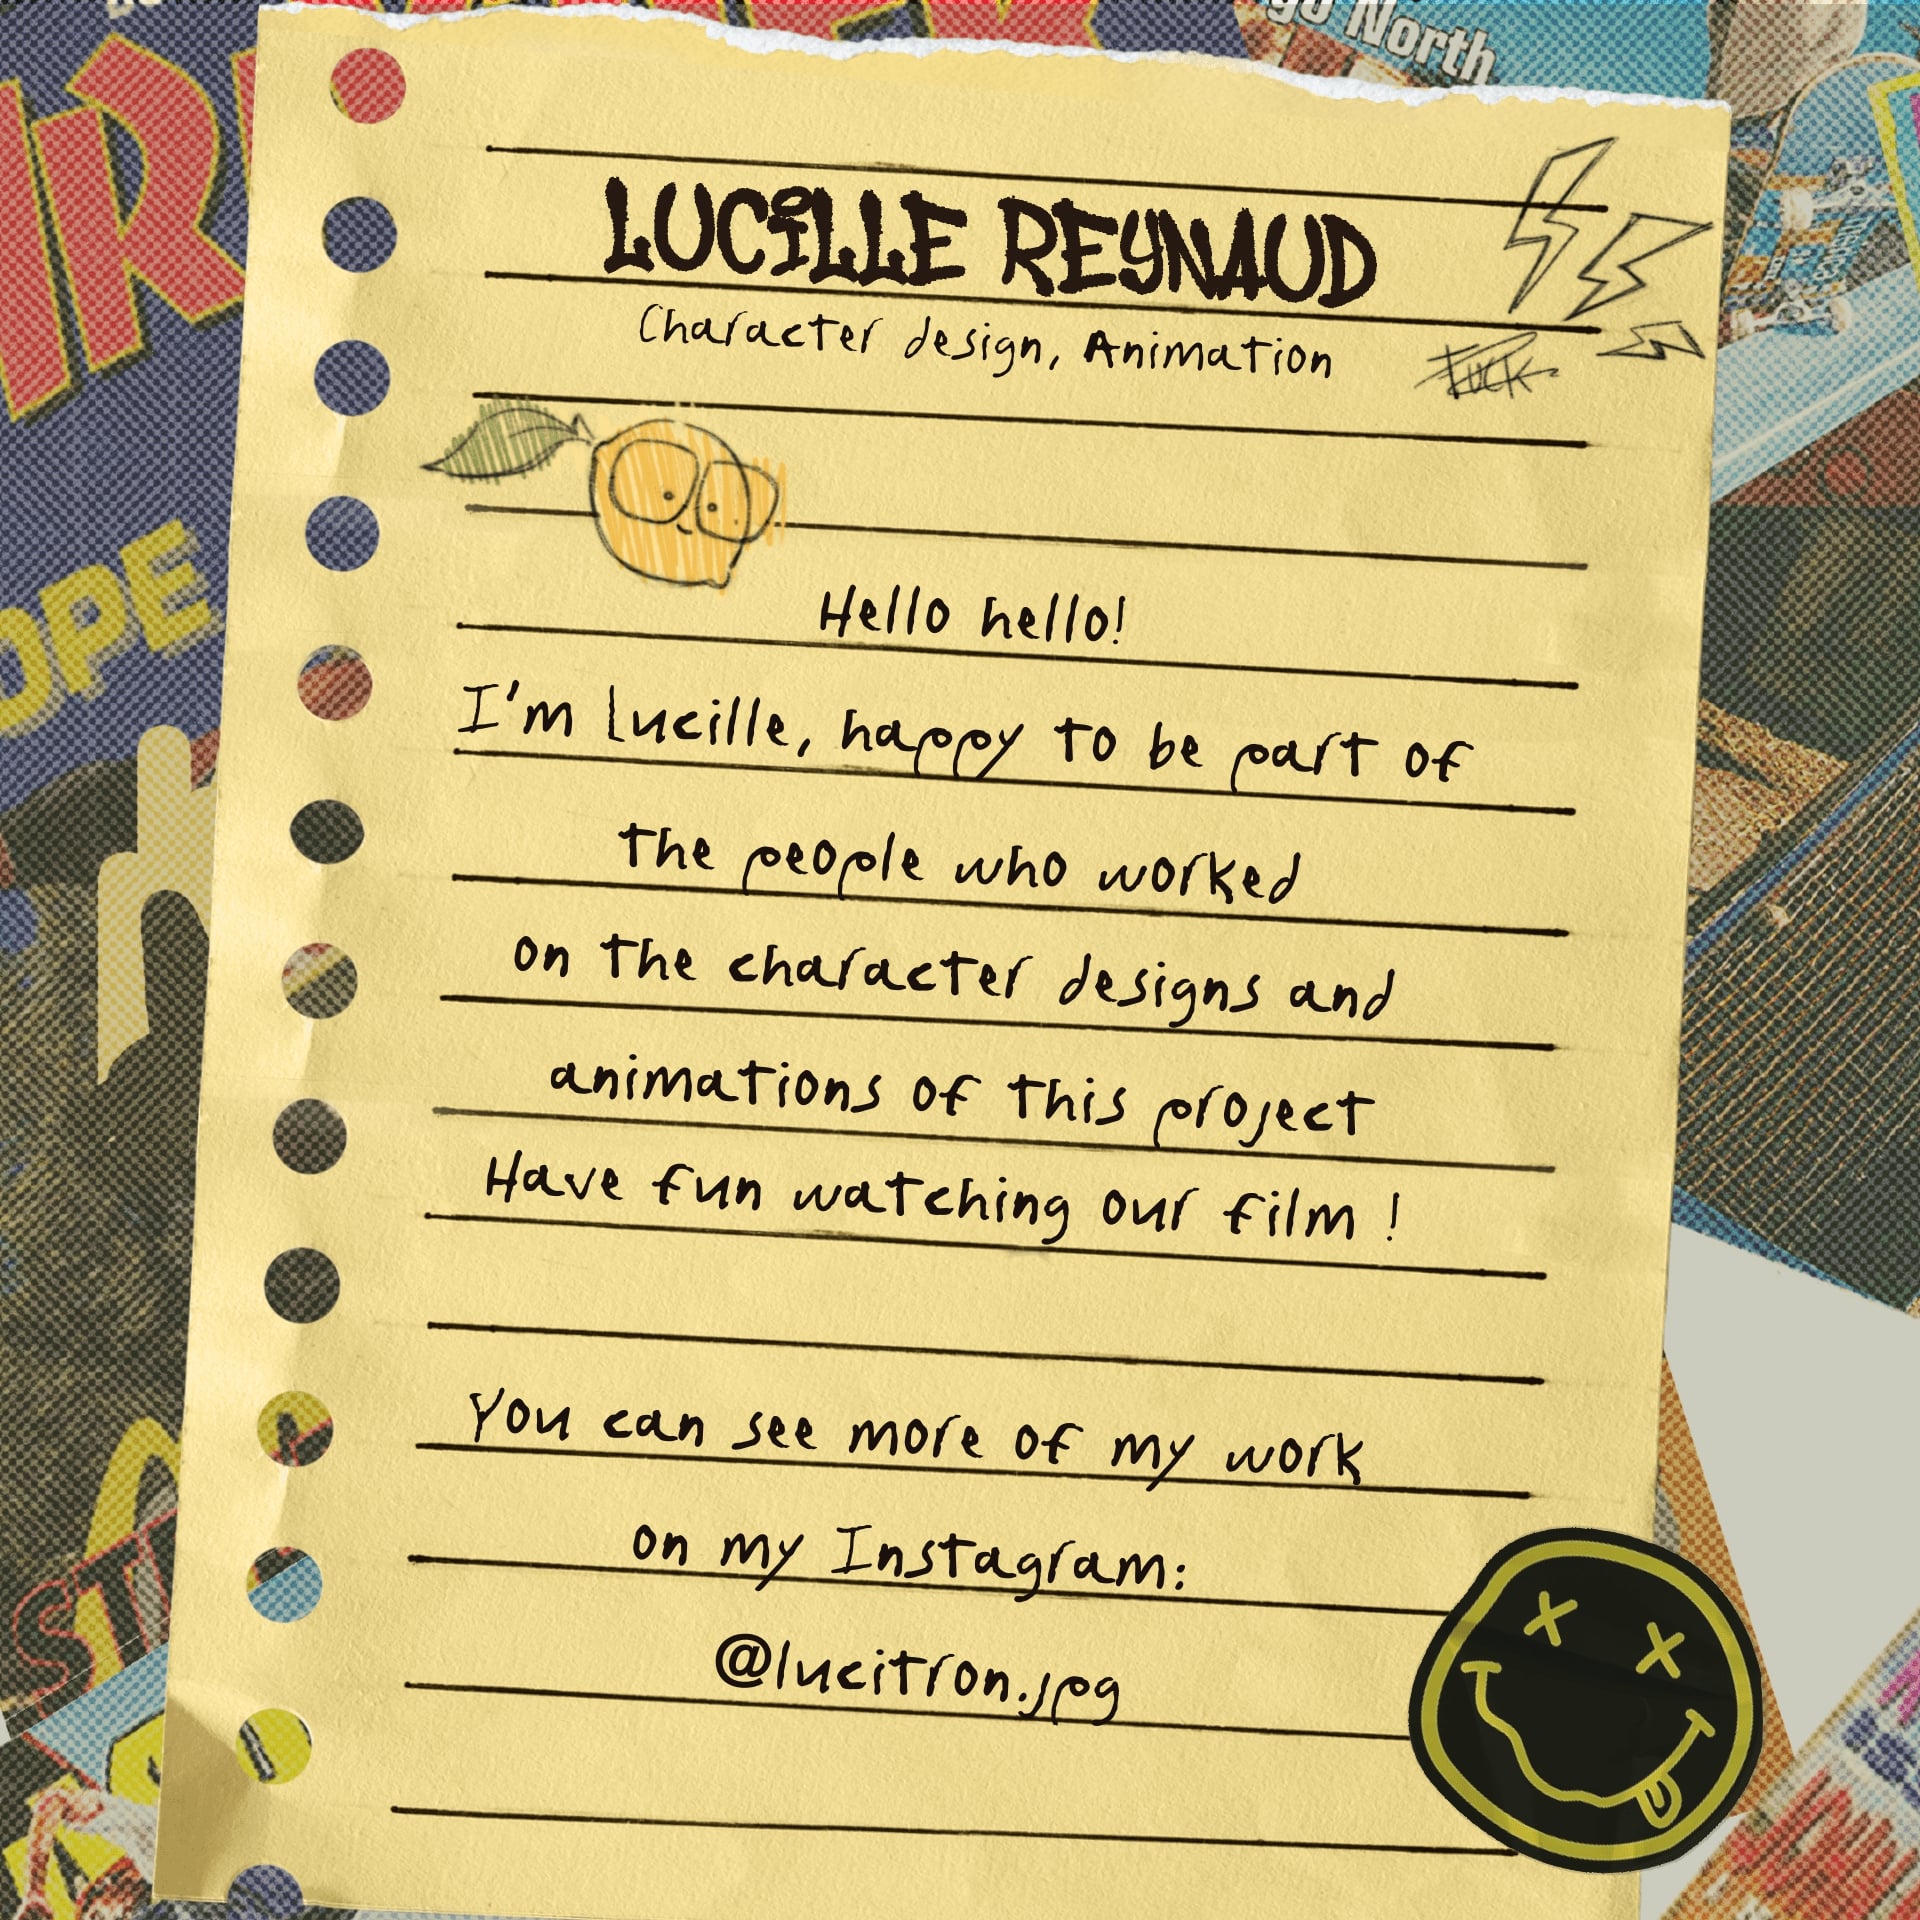 go North
LUCiLLE REYNAUD
Character design, Animation
FUCK
OPE
Hello hello!
I'm Lucille, happy to be part of
the people who worked
on the character designs and
animations of this project
Have fun watching our film !
You can see more of my work
on my Instagram:
@lucitron.jpg